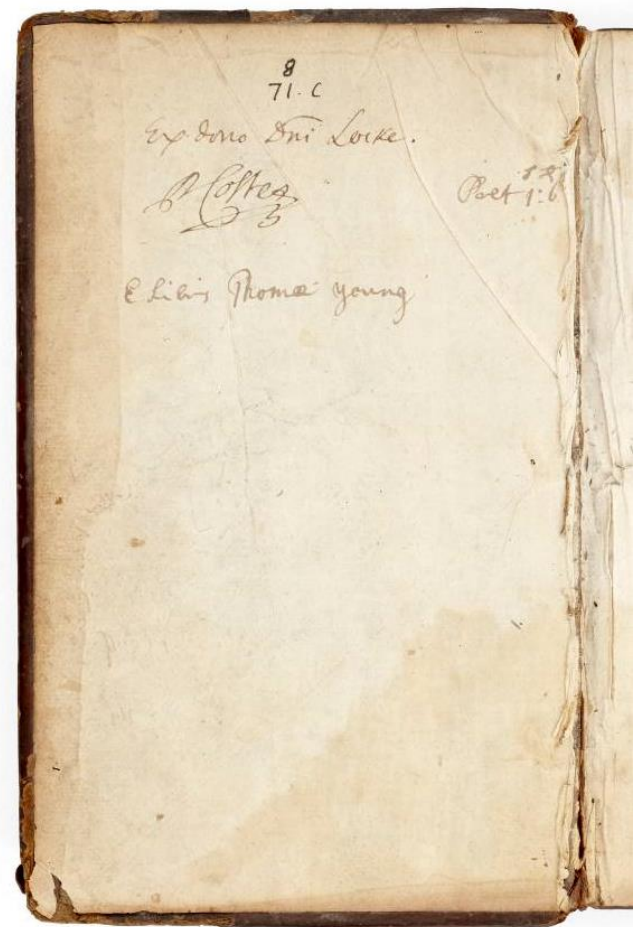 8
71. C
Ex dono Dni Locke.
P Coste
E Libris Thomæ Young